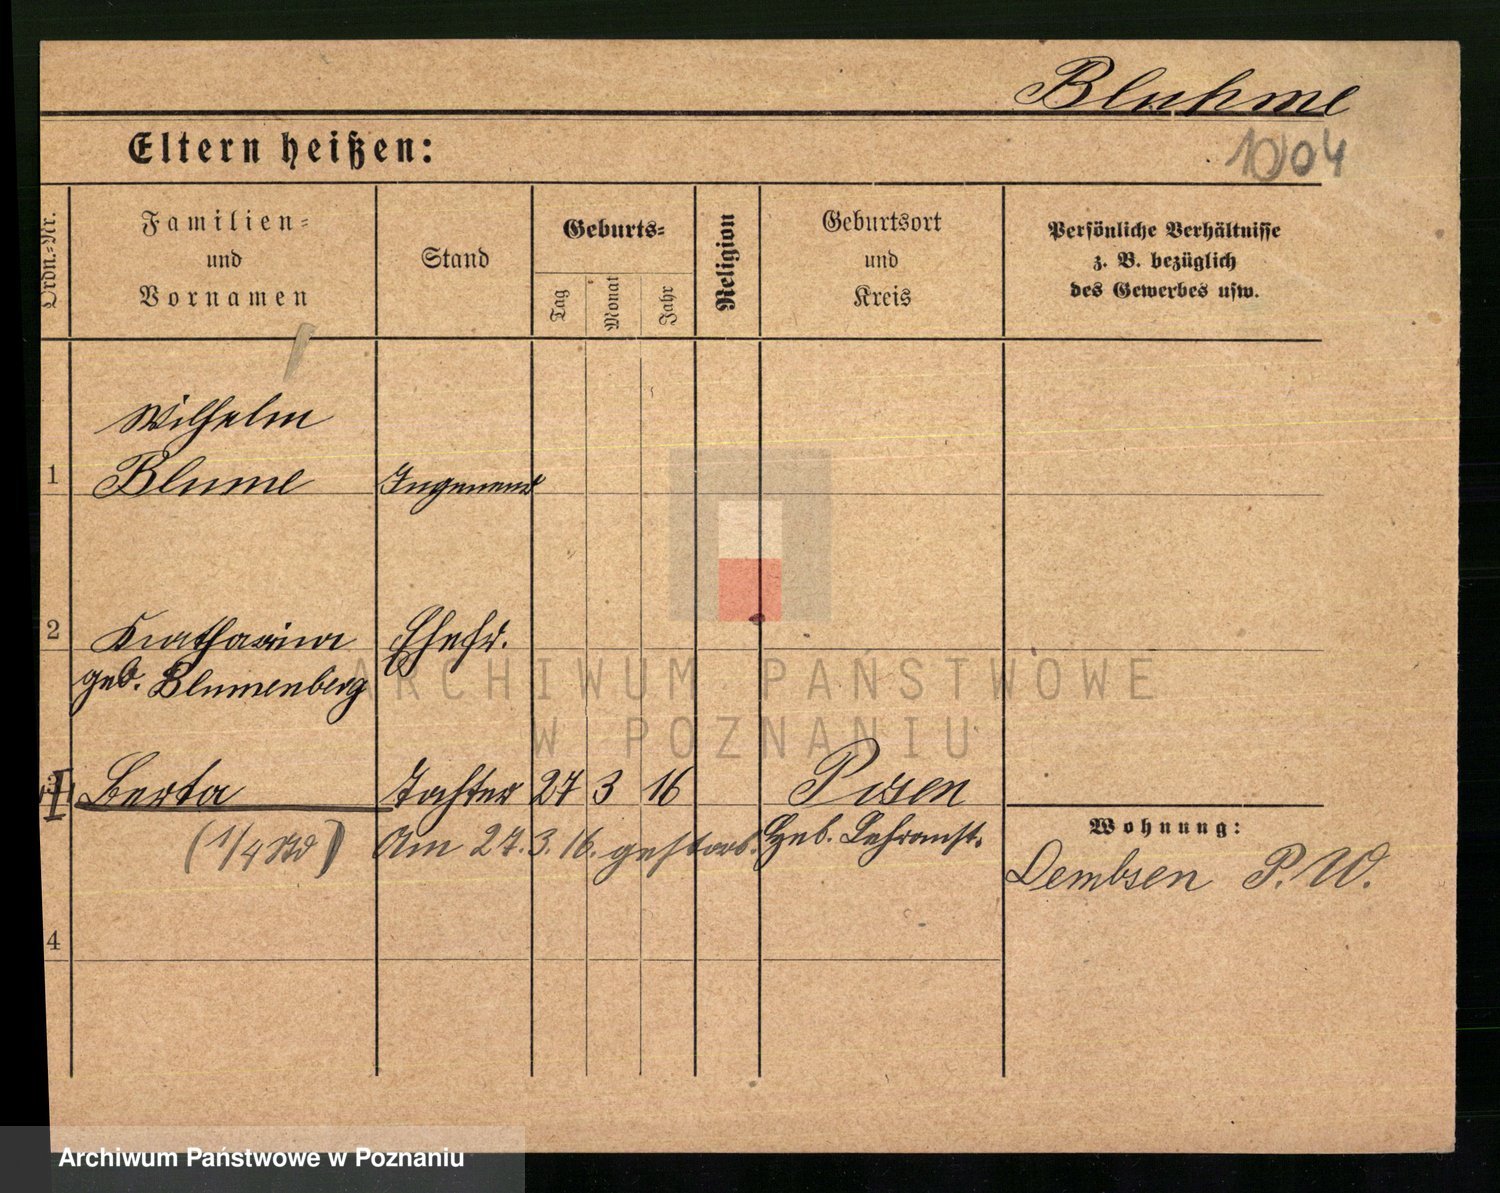 Bluhme
Eltern heißen:
1004
Ordn.-Nr.
Familien-
und
Vornamen
Stand
Geburts-
Tag
Monat
Jahr
Religion
Geburtsort
und
Kreis
Persönliche Verhältnisse
z. B. bezüglich
des Gewerbes usw.
Wilhelm
1 Blume
2 Katharina Ehefr.
geb. Blumenberg
3 Berta Tochter 27 3 16 Posen
(1/4 Std) Am 27. 3. 16. gestorb. Heb. Lehranst.
Wohnung:
Dembsen P. W.
4
ARCHIWUM PAŃSTWOWE
W POZNANIU
Archiwum Państwowe w Poznaniu